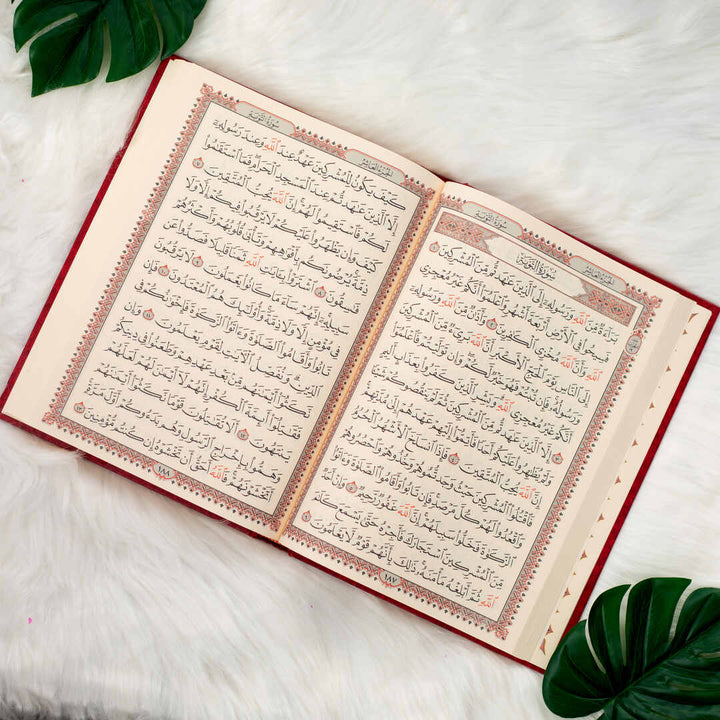 سُورَةُ التَّوْبَةِ
الجُزْءُ العَاشِرُ
سُورَةُ التَّوْبَةِ
بَرَآءَةٌ مِّنَ ٱللَّهِ وَرَسُولِهِۦٓ إِلَى ٱلَّذِينَ عَٰهَدتُّم مِّنَ ٱلْمُشْرِكِينَ ١
فَسِيحُوا۟ فِى ٱلْأَرْضِ أَرْبَعَةَ أَشْهُرٍ وَٱعْلَمُوٓا۟ أَنَّكُمْ غَيْرُ مُعْجِزِى
ٱللَّهِ وَأَنَّ ٱللَّهَ مُخْزِى ٱلْكَٰفِرِينَ ٢ وَأَذَٰنٌ مِّنَ ٱللَّهِ وَرَسُولِهِۦٓ
إِلَى ٱلنَّاسِ يَوْمَ ٱلْحَجِّ ٱلْأَكْبَرِ أَنَّ ٱللَّهَ بَرِىٓءٌ مِّنَ ٱلْمُشْرِكِينَ
وَرَسُولُهُۥ فَإِن تُبْتُمْ فَهُوَ خَيْرٌ لَّكُمْ وَإِن تَوَلَّيْتُمْ فَٱعْلَمُوٓا۟
أَنَّكُمْ غَيْرُ مُعْجِزِى ٱللَّهِ وَبَشِّرِ ٱلَّذِينَ كَفَرُوا۟ بِعَذَابٍ أَلِيمٍ ٣
إِلَّا ٱلَّذِينَ عَٰهَدتُّم مِّنَ ٱلْمُشْرِكِينَ ثُمَّ لَمْ يَنقُصُوكُمْ شَيْـًٔا
وَلَمْ يُظَٰهِرُوا۟ عَلَيْكُمْ أَحَدًا فَأَتِمُّوٓا۟ إِلَيْهِمْ عَهْدَهُمْ إِلَىٰ مُدَّتِهِمْ
إِنَّ ٱللَّهَ يُحِبُّ ٱلْمُتَّقِينَ ٤ فَإِذَا ٱنسَلَخَ ٱلْأَشْهُرُ ٱلْحُرُمُ
فَٱقْتُلُوا۟ ٱلْمُشْرِكِينَ حَيْثُ وَجَدتُّمُوهُمْ وَخُذُوهُمْ وَٱحْصُرُوهُمْ
وَٱقْعُدُوا۟ لَهُمْ كُلَّ مَرْصَدٍ فَإِن تَابُوا۟ وَأَقَامُوا۟ ٱلصَّلَوٰةَ وَءَاتَوُا۟
ٱلزَّكَوٰةَ فَخَلُّوا۟ سَبِيلَهُمْ إِنَّ ٱللَّهَ غَفُورٌ رَّحِيمٌ ٥ وَإِنْ أَحَدٌ
مِّنَ ٱلْمُشْرِكِينَ ٱسْتَجَارَكَ فَأَجِرْهُ حَتَّىٰ يَسْمَعَ كَلَٰمَ
ٱللَّهِ ثُمَّ أَبْلِغْهُ مَأْمَنَهُۥ ذَٰلِكَ بِأَنَّهُمْ قَوْمٌ لَّا يَعْلَمُونَ ٦
١٨٧
سُورَةُ التَّوْبَةِ
الجُزْءُ العَاشِرُ
كَيْفَ يَكُونُ لِلْمُشْرِكِينَ عَهْدٌ عِندَ ٱللَّهِ وَعِندَ رَسُولِهِۦٓ
إِلَّا ٱلَّذِينَ عَٰهَدتُّمْ عِندَ ٱلْمَسْجِدِ ٱلْحَرَامِ فَمَا ٱسْتَقَٰمُوا۟
لَكُمْ فَٱسْتَقِيمُوا۟ لَهُمْ إِنَّ ٱللَّهَ يُحِبُّ ٱلْمُتَّقِينَ ٧
كَيْفَ وَإِن يَظْهَرُوا۟ عَلَيْكُمْ لَا يَرْقُبُوا۟ فِيكُمْ إِلًّا وَلَا
ذِمَّةً يُرْضُونَكُم بِأَفْوَٰهِهِمْ وَتَأْبَىٰ قُلُوبُهُمْ وَأَكْثَرُهُمْ
فَٰسِقُونَ ٨ ٱشْتَرَوْا۟ بِـَٔايَٰتِ ٱللَّهِ ثَمَنًا قَلِيلًا فَصَدُّوا۟ عَن
سَبِيلِهِۦٓ إِنَّهُمْ سَآءَ مَا كَانُوا۟ يَعْمَلُونَ ٩ لَا يَرْقُبُونَ
فِى مُؤْمِنٍ إِلًّا وَلَا ذِمَّةً وَأُو۟لَٰٓئِكَ هُمُ ٱلْمُعْتَدُونَ ١٠ فَإِن
تَابُوا۟ وَأَقَامُوا۟ ٱلصَّلَوٰةَ وَءَاتَوُا۟ ٱلزَّكَوٰةَ فَإِخْوَٰنُكُمْ فِى
ٱلدِّينِ وَنُفَصِّلُ ٱلْـَٔايَٰتِ لِقَوْمٍ يَعْلَمُونَ ١١ وَإِن
نَّكَثُوٓا۟ أَيْمَٰنَهُم مِّنۢ بَعْدِ عَهْدِهِمْ وَطَعَنُوا۟ فِى دِينِكُمْ
فَقَٰتِلُوٓا۟ أَئِمَّةَ ٱلْكُفْرِ إِنَّهُمْ لَآ أَيْمَٰنَ لَهُمْ لَعَلَّهُمْ
يَنتَهُونَ ١٢ أَلَا تُقَٰتِلُونَ قَوْمًا نَّكَثُوٓا۟ أَيْمَٰنَهُمْ
وَهَمُّوا۟ بِإِخْرَاجِ ٱلرَّسُولِ وَهُم بَدَءُوكُمْ أَوَّلَ مَرَّةٍ
أَتَخْشَوْنَهُمْ فَٱللَّهُ أَحَقُّ أَن تَخْشَوْهُ إِن كُنتُم مُّؤْمِنِينَ ١٣
١٨٨